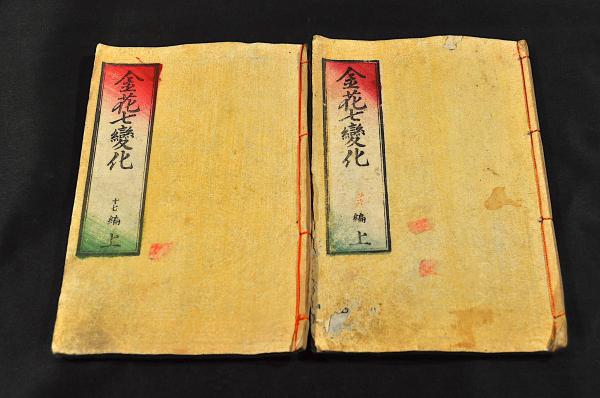 金花七變化
十七編
上
金花七變化
編
上